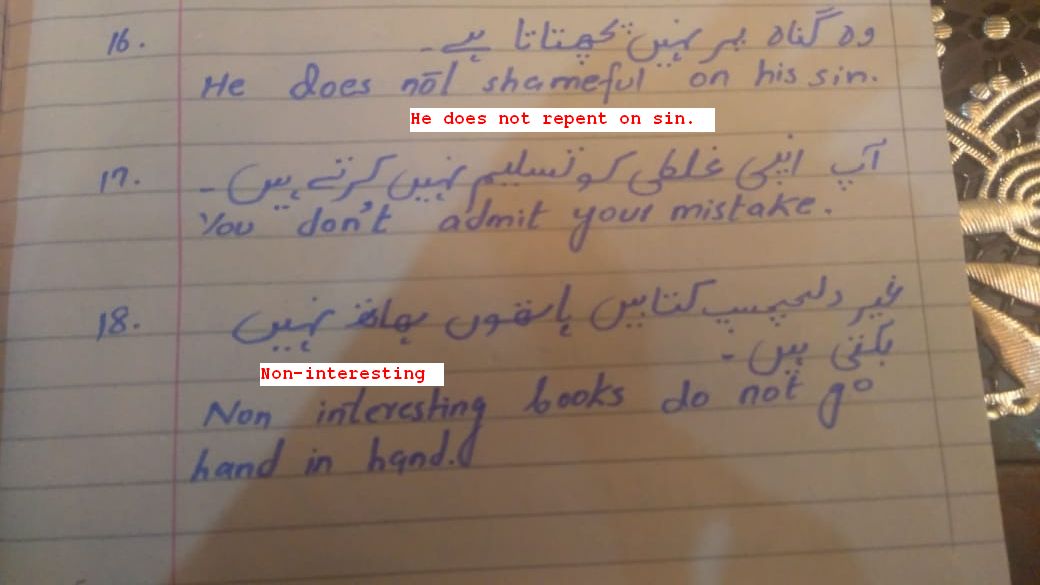 16. وہ گناہ پر نہیں پچھتاتا ہے۔
He does not shameful on his sin.
He does not repent on sin.
17. آپ اپنی غلطی کو تسلیم نہیں کرتے ہیں۔
You don't admit your mistake.
18. غیر دلچسپ کتابیں ہاتھوں ہاتھ نہیں
بکتی ہیں۔
Non-interesting
Non interesting books do not go
hand in hand.